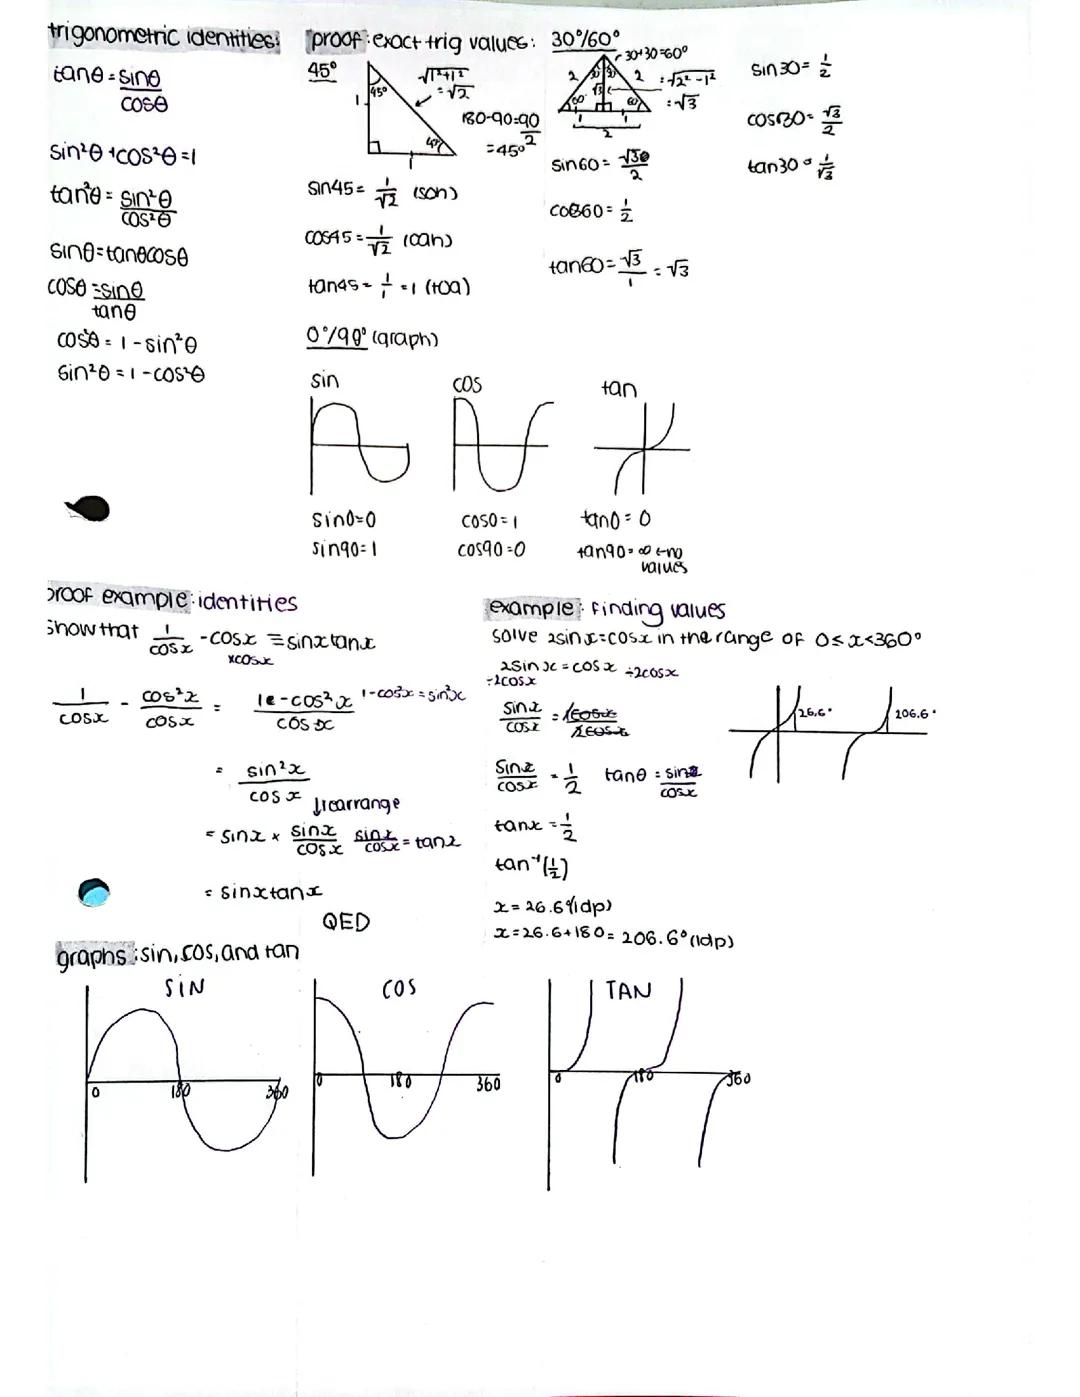 trigonometric identities:
tanθ = sinθ/cosθ
sin²θ + cos²θ = 1
tan²θ = sin²θ/cos²θ
sinθ = tanθcosθ
cosθ = sinθ/tanθ
cos²θ = 1 - sin²θ
sin²θ = 1 - cos²θ
proof: exact trig values:
45°
45°
1
√1²+1²
= √2
45°
1
180-90=90/2
= 45°
sin45 = 1/√2 (soh)
cos45 = 1/√2 (cah)
tan45 = 1/1 = 1 (toa)
30°/60°
30+30=60°
2
30
30
2
√3
60
60
1
1
2
= √2²-1²
= √3
sin60 = √3/2
cos60 = 1/2
tan60 = √3/1 = √3
sin30 = 1/2
cos30 = √3/2
tan30 = 1/√3
0°/90° (graph)
sin
cos
tan
sin0=0
sin90=1
cos0=1
cos90=0
tan0=0
tan90=∞ ←no
values
proof example: identities
show that 1/cosx - cosx ≡ sinxtanx
xcosx
1/cosx - cos²x/cosx = 1-cos²x/cosx 1-cos²x = sin²x
= sin²x/cosx
↓rearrange
= sinx × sinx/cosx sinx/cosx = tanx
= sinxtanx
QED
example: finding values
solve 2sinx=cosx in the range of 0≤x<360°
2sinx = cosx ÷2cosx
÷2cosx
sinx/cosx = 1cosx/2cosx
sinx/cosx = 1/2 tanθ = sinx/cosx
tanx = 1/2
tan⁻¹(1/2)
x = 26.6°(1dp)
x = 26.6+180 = 206.6° (1dp)
26.6°
206.6°
graphs: sin, cos, and tan
SIN
0
180
360
COS
0
180
360
TAN
0
180
360